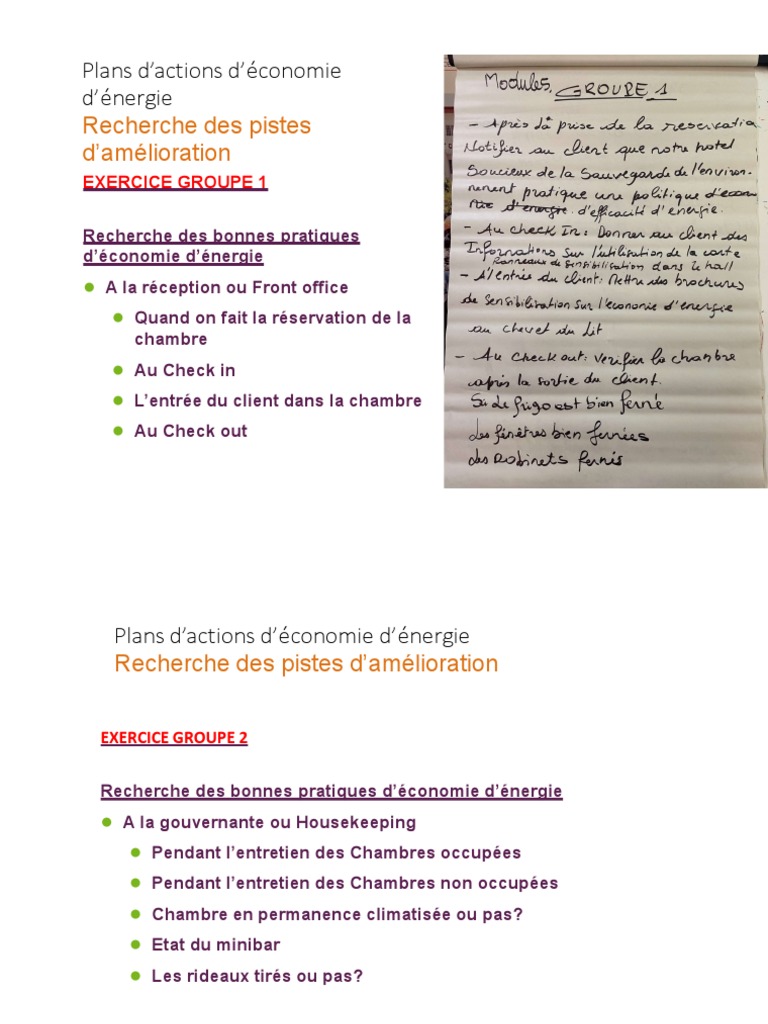 Plans d'actions d'économie
d'énergie
Recherche des pistes
d'amélioration
EXERCICE GROUPE 1
Recherche des bonnes pratiques
d'économie d'énergie
A la réception ou Front office
Quand on fait la réservation de la
chambre
Au Check in
L'entrée du client dans la chambre
Au Check out
Modules. GROUPE 1
- Après la prise de la reservation
Notifier au client que notre hotel
Soucieux de la Sauvegarde de l'environ-
nement pratique une politique d'econo
mie d'energie. d'efficacité d'energie.
- Au check In: Donner au client des
Informations sur l'utilisation de la carte
Panneaux de sensibilisation dans le hall
- A l'entrée du client: Mettre des brochures
de sensibilisation sur l'économie d'energie
au chevet du lit
- Au check out: verifier la chambre
après la sortie du client.
Si le frigo est bien fermé
des fenêtres bien fermées
des Robinets fermés
Plans d'actions d'économie d'énergie
Recherche des pistes d'amélioration
EXERCICE GROUPE 2
Recherche des bonnes pratiques d'économie d'énergie
A la gouvernante ou Housekeeping
Pendant l'entretien des Chambres occupées
Pendant l'entretien des Chambres non occupées
Chambre en permanence climatisée ou pas?
Etat du minibar
Les rideaux tirés ou pas?